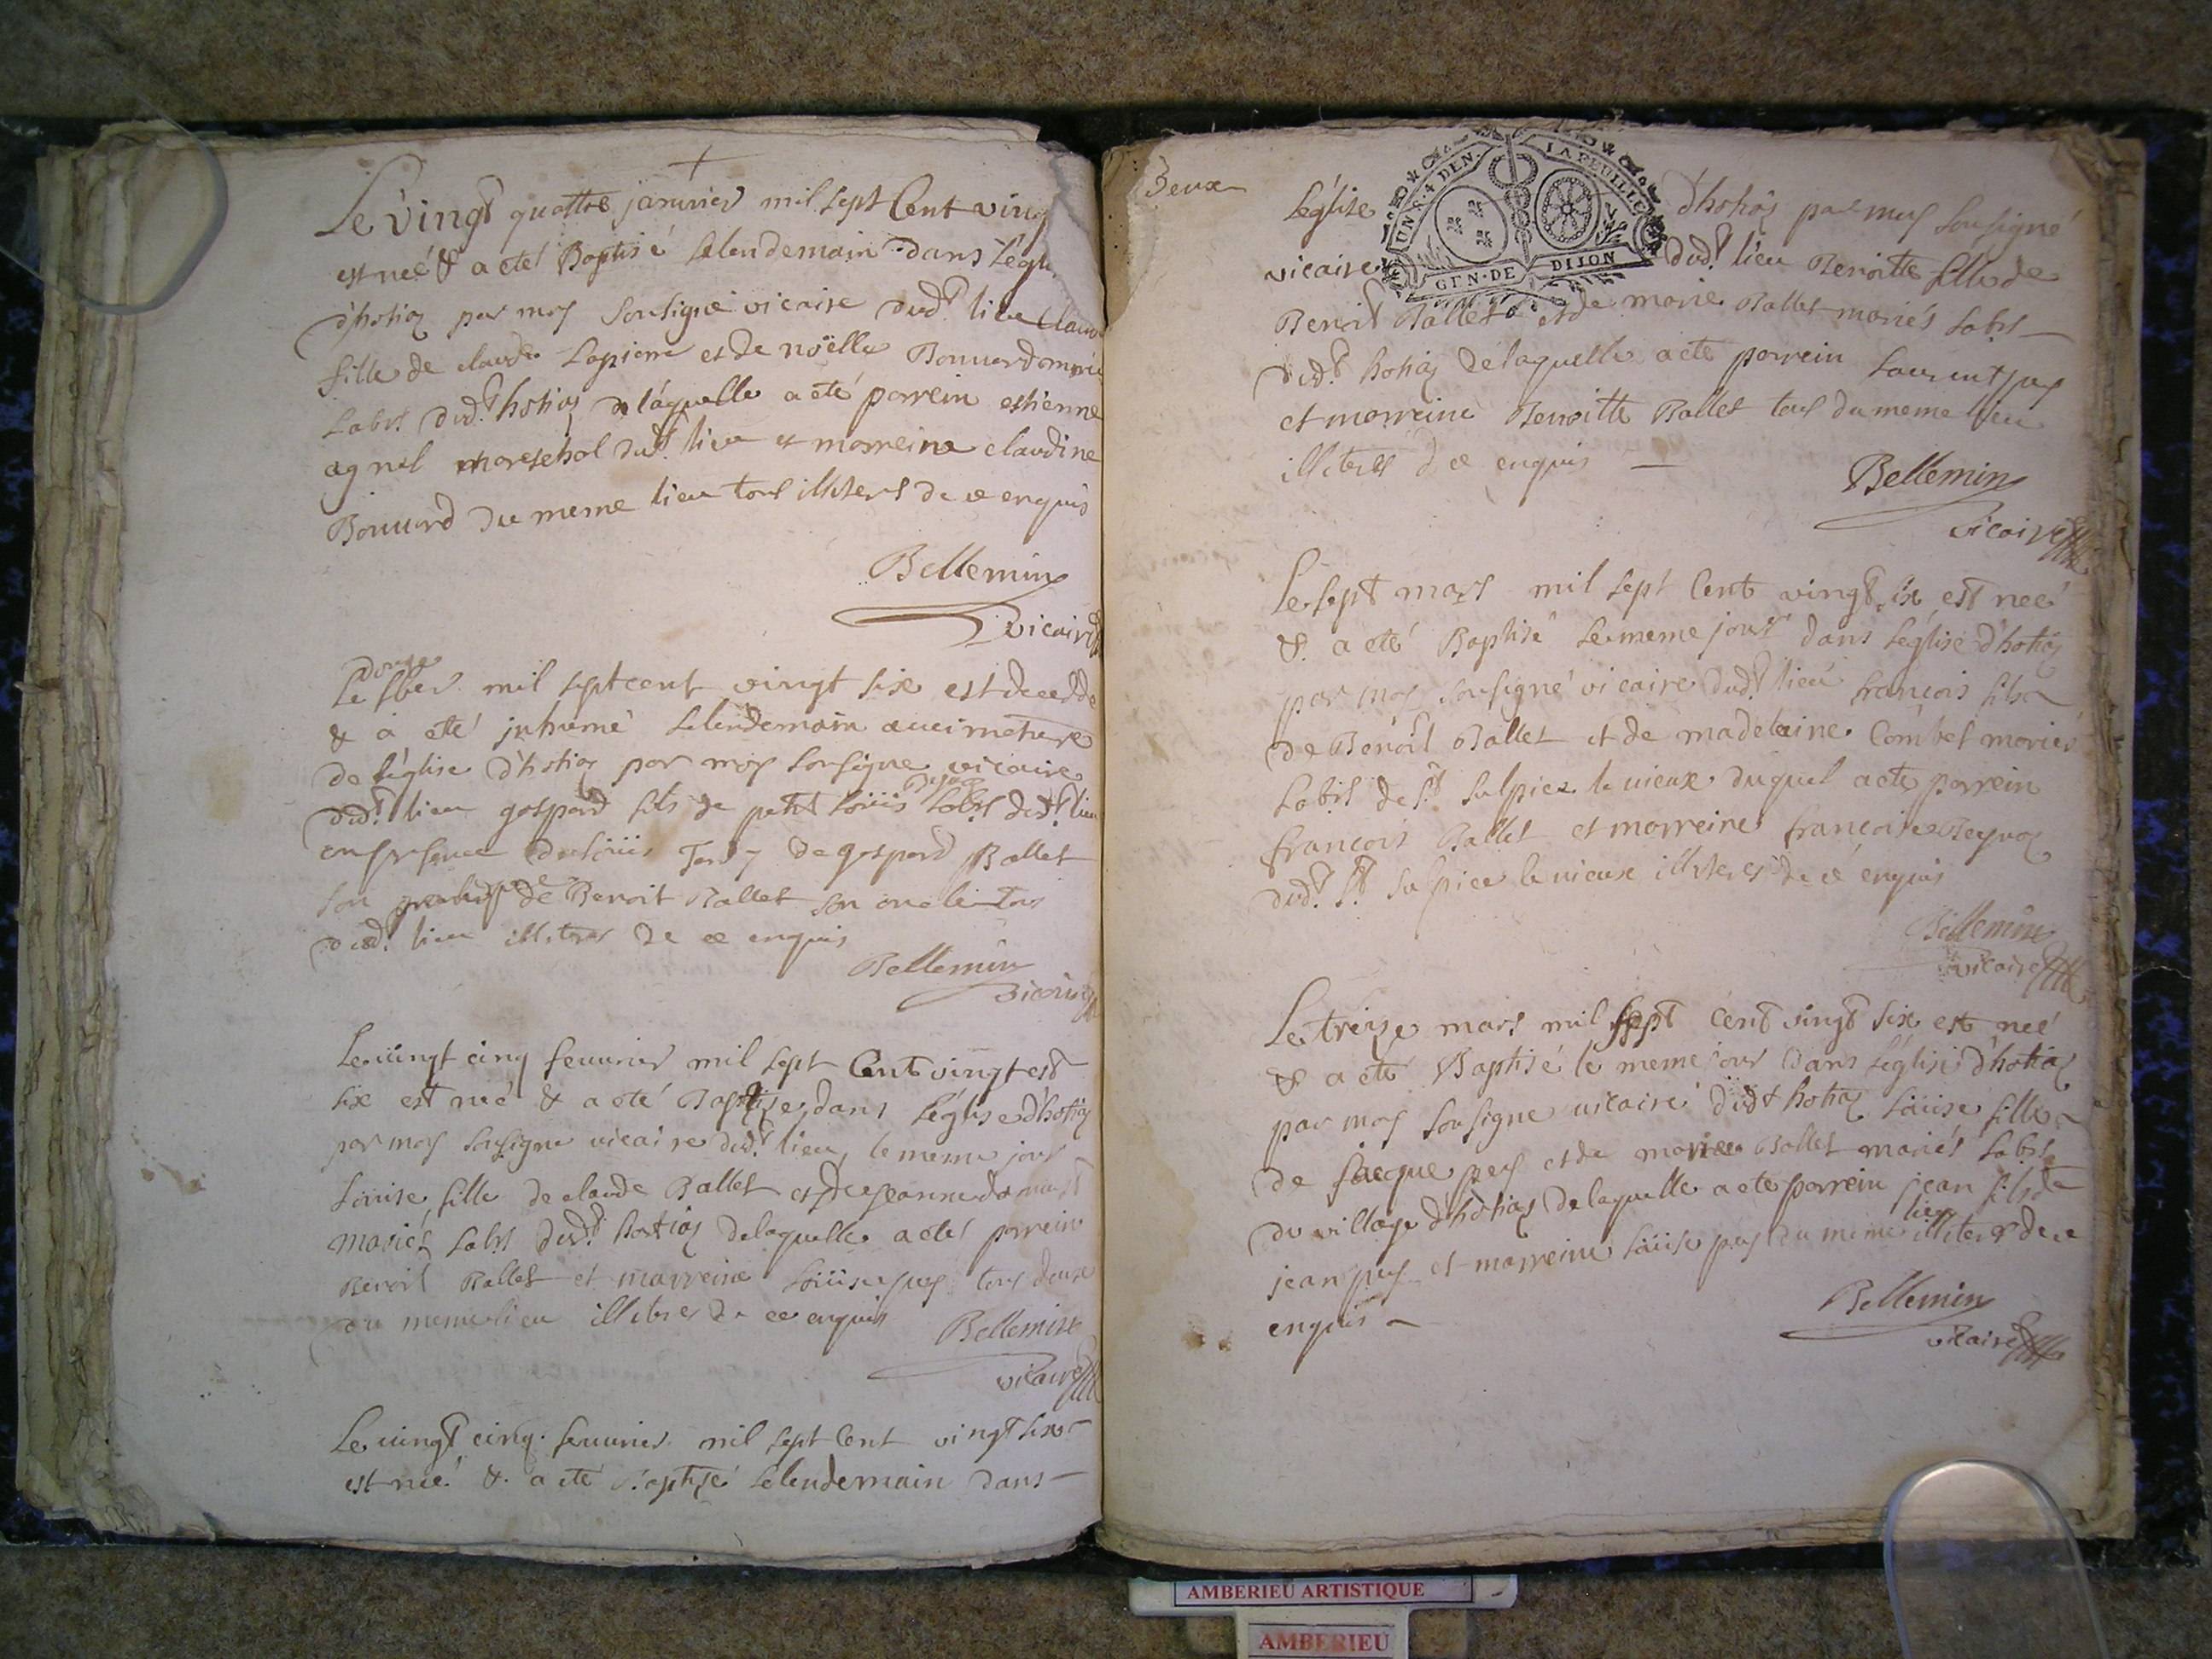 Le vingt quattre janvier mil sept Cent ving
est neé & a eté Baptisé le lendemain dans l'égli
d'hotiaz par moy sousigné vicaire dud.t lieu Claud
fille de claude Lapierre et de noëlle Bonnard marié
lab.rs dud.t hotiaz de laquelle a eté parrein estienne
agniel mareschol dud.t lieu et marreine claudine
Bonnard du meme lieu tous illiteres de ce enquis
Bellemin
vicaire
douze
Le mil sept cent vingt six est decedé
& a eté inhumé le lendemain au cimetiere
de l'église d'hotiaz par moy sousigne vicaire
dud.t lieu gaspard fils de petit loüis lab.rs dud.t lieu
en presence de loüis de gaspard Ballet
son de Benoit Ballet son oncle tous
dud.t lieu illiteres de ce enquis
Bellemin
vicaire
Le vingt cinq feuurier mil sept Cent vingt est
six est neé & a eté Baptisé dans l'églie d'hotiaz
par moy sousigne vicaire dud.t lieu le meme jour
Loüise fille de claude Ballet et de jeanne
mariés lab.rs dud.t hotiaz de laquelle a eté parrein
Benoit Ballet et marreine Loüise puy tous deux
du meme lieu illiteres de ce enquis
Bellemin
vicaire
Le vingt cinq feuurier mil sept Cent vingt six
est neé & a eté Baptisé le lendemain dans
Deux
l'église d'hotiaz par moy sousigné
UN S. 4 DEN. LA FEUILLE
GEN. DE DIJON
vicaire dud.t lieu Benoitte fille de
Benoit Ballet et de marie Ballet mariés lab.rs
dud.t hotiaz de laquelle a eté parrein laurent puy
et marreine Benoitte Ballet tous du meme lieu
illiteres de ce enquis
Bellemin
vicaire
Le sept mars mil sept Cent vingt six est neé
& a eté Baptisé le meme jour dans l'église d'hotiaz
par moy sousigné vicaire dud.t lieu françois fils
de Benoit Ballet et de madelaine Combet mariés
lab.rs de s.t sulpice le vieux duquel a eté parrein
françois Ballet et marreine françoise Reynoz
dud.t s.t sulpice le vieux illiteres de cé enquis
Bellemin
vicaire
Le treize mars mil sept Cent vingt six est neé
& a eté Baptisé le meme jour dans l'église d'hotiaz
par moy sousigne vicaire dudt hotiaz Loüise fille
de jacque puy et de marie Ballet mariés lab.rs
du village d'hotiaz de laquelle a eté parrein jean fils de
jean puy et marreine Loüise puy du meme lieu illiteres de ce
enquis
Bellemin
vicaire
AMBERIEU ARTISTIQUE
AMBERIEU